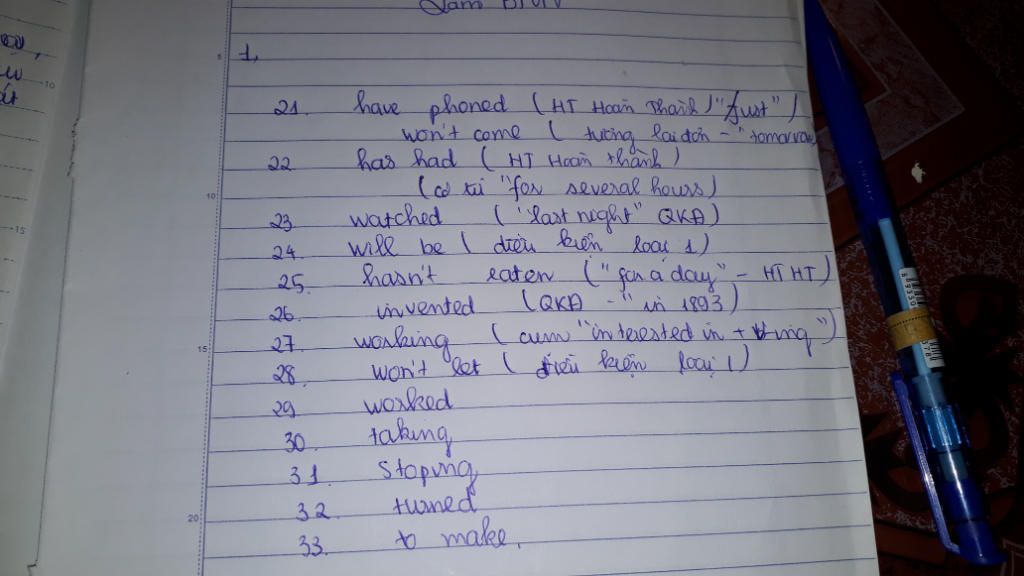 1,
21. have phoned ( HT Hoàn Thành / "Just" )
won't come ( tương lai đơn - "tomorrow
22 has had ( HT Hoàn thành )
(có từ "for several hours)
23 watched ( "last night" QKĐ )
24 will be ( điều kiện loại 1 )
25. hasn't eaten ( "for a day" - HTHT )
26 invented (QKĐ - "in 1893 )
27 working ( cụm "interested in + Ving" )
28 won't let ( điều kiện loại 1 )
29 worked
30. taking
31. Stoping
32. turned
33. to make.